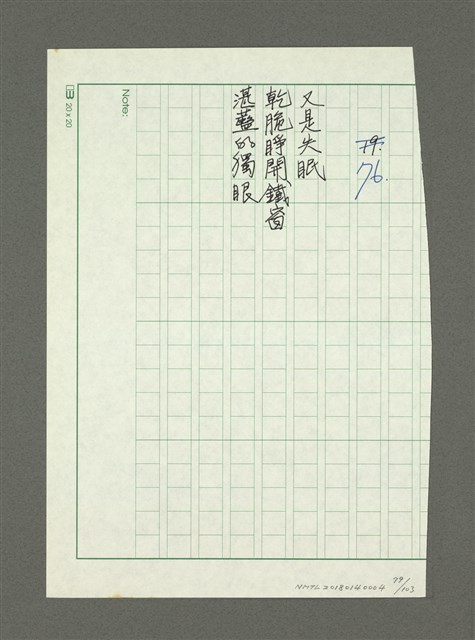 76.
又是失眠
乾脆睜開鐵窗
湛藍的獨眼
Note:
20x20
NMTL20180140004
79/103